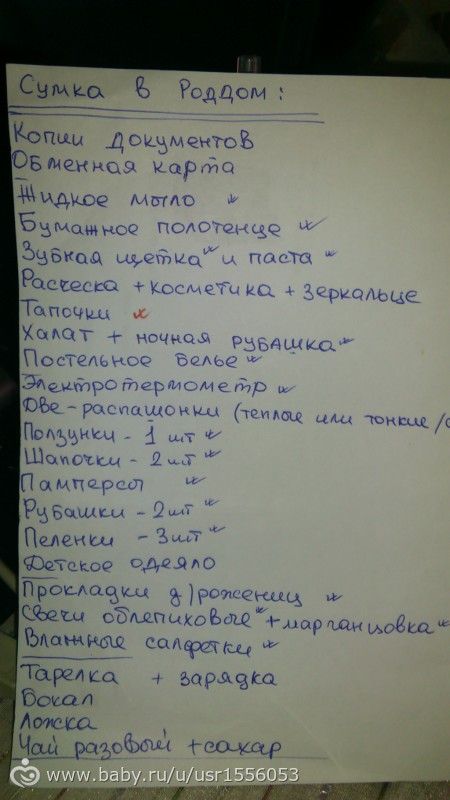 Сумка в роддом:
Копии документов
Обменная карта
Жидкое мыло
Бумажное полотенце
Зубная щетка и паста
Расческа + косметика + зеркальце
Тапочки
Халат + ночная рубашка
Постельное белье
Электротермометр
Две-распашонки (теплые или тонкие/
Ползунки - 1 шт
Шапочки - 2 шт
Памперсы
Рубашки - 2 шт
Пеленки - 3 шт
Детское одеяло
Прокладки д/рожениц
Свечи облепиховые + марганцовка
Влажные салфетки
Тарелка + зарядка
Бокал
Ложка
Чай разовый + сахар
www.baby.ru/u/usr1556053